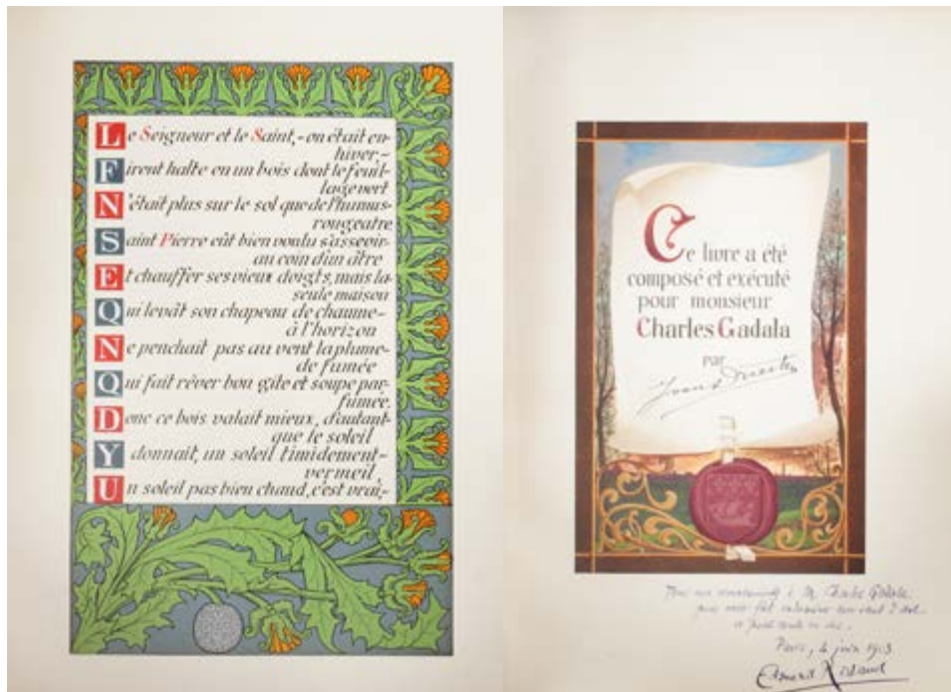 Le Seigneur et le Saint,- on était en-
hiver,-
Firent halte en un bois dont le feuil-
lage vert
N'était plus sur le sol que de l'humus-
rougeatre
Saint Pierre eût bien voulu s'asseoir-
au coin d'un âtre
Et chauffer ses vieux doigts, mais la-
seule maison
Qui levât son chapeau de chaume-
à l'horizon
Ne penchait pas au vent la plume-
de fumée
Qui fait rêver bon gîte et soupe par-
fumée.
Donc ce bois valait mieux, d'autant-
que le soleil
Y donnait, un soleil timidement-
vermeil
Un soleil pas bien chaud, c'est vrai,-
Ce livre a été
composé et exécuté
pour monsieur
Charles Gadala
par
à M. Charles Gadala
Paris, 4 juin 1903
Edmond Rostand